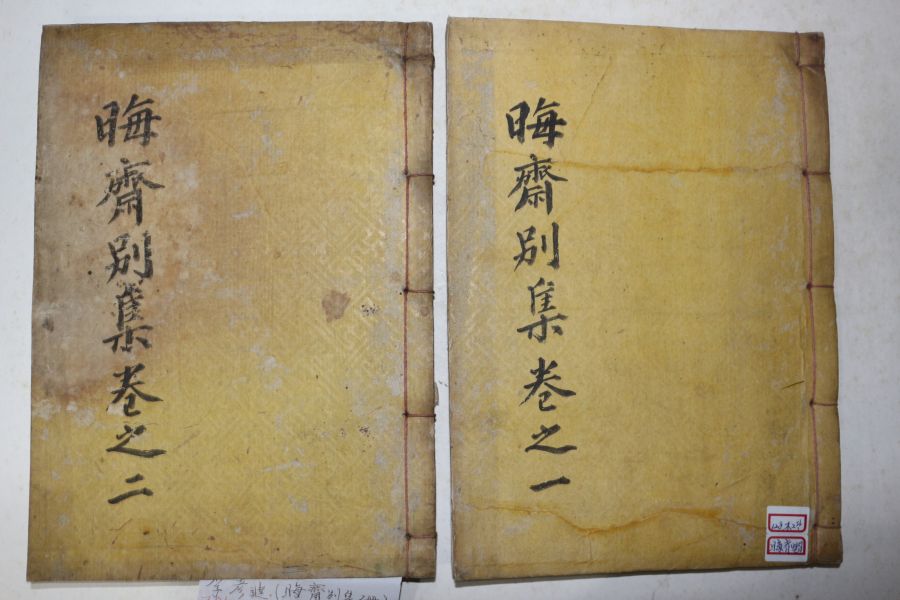 晦齋別集卷之一
晦齋別集卷之二
晦齋別集